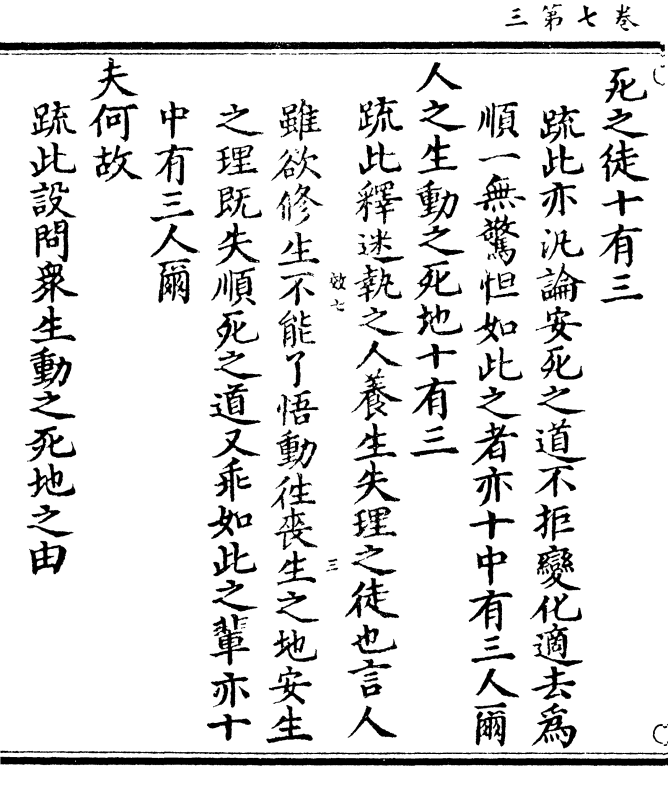 三第七卷
死之徒十有三
疏此亦汎論安死之道不拒變化適去爲
順一無驚怛如此之者亦十中有三人爾
人之生動之死地十有三
疏此釋迷執之人養生失理之徒也言人
效七
三
雖欲修生不能了悟動徃喪生之地安生
之理既失順死之道又乖如此之輩亦十
中有三人爾
夫何故
疏此設問衆生動之死地之由